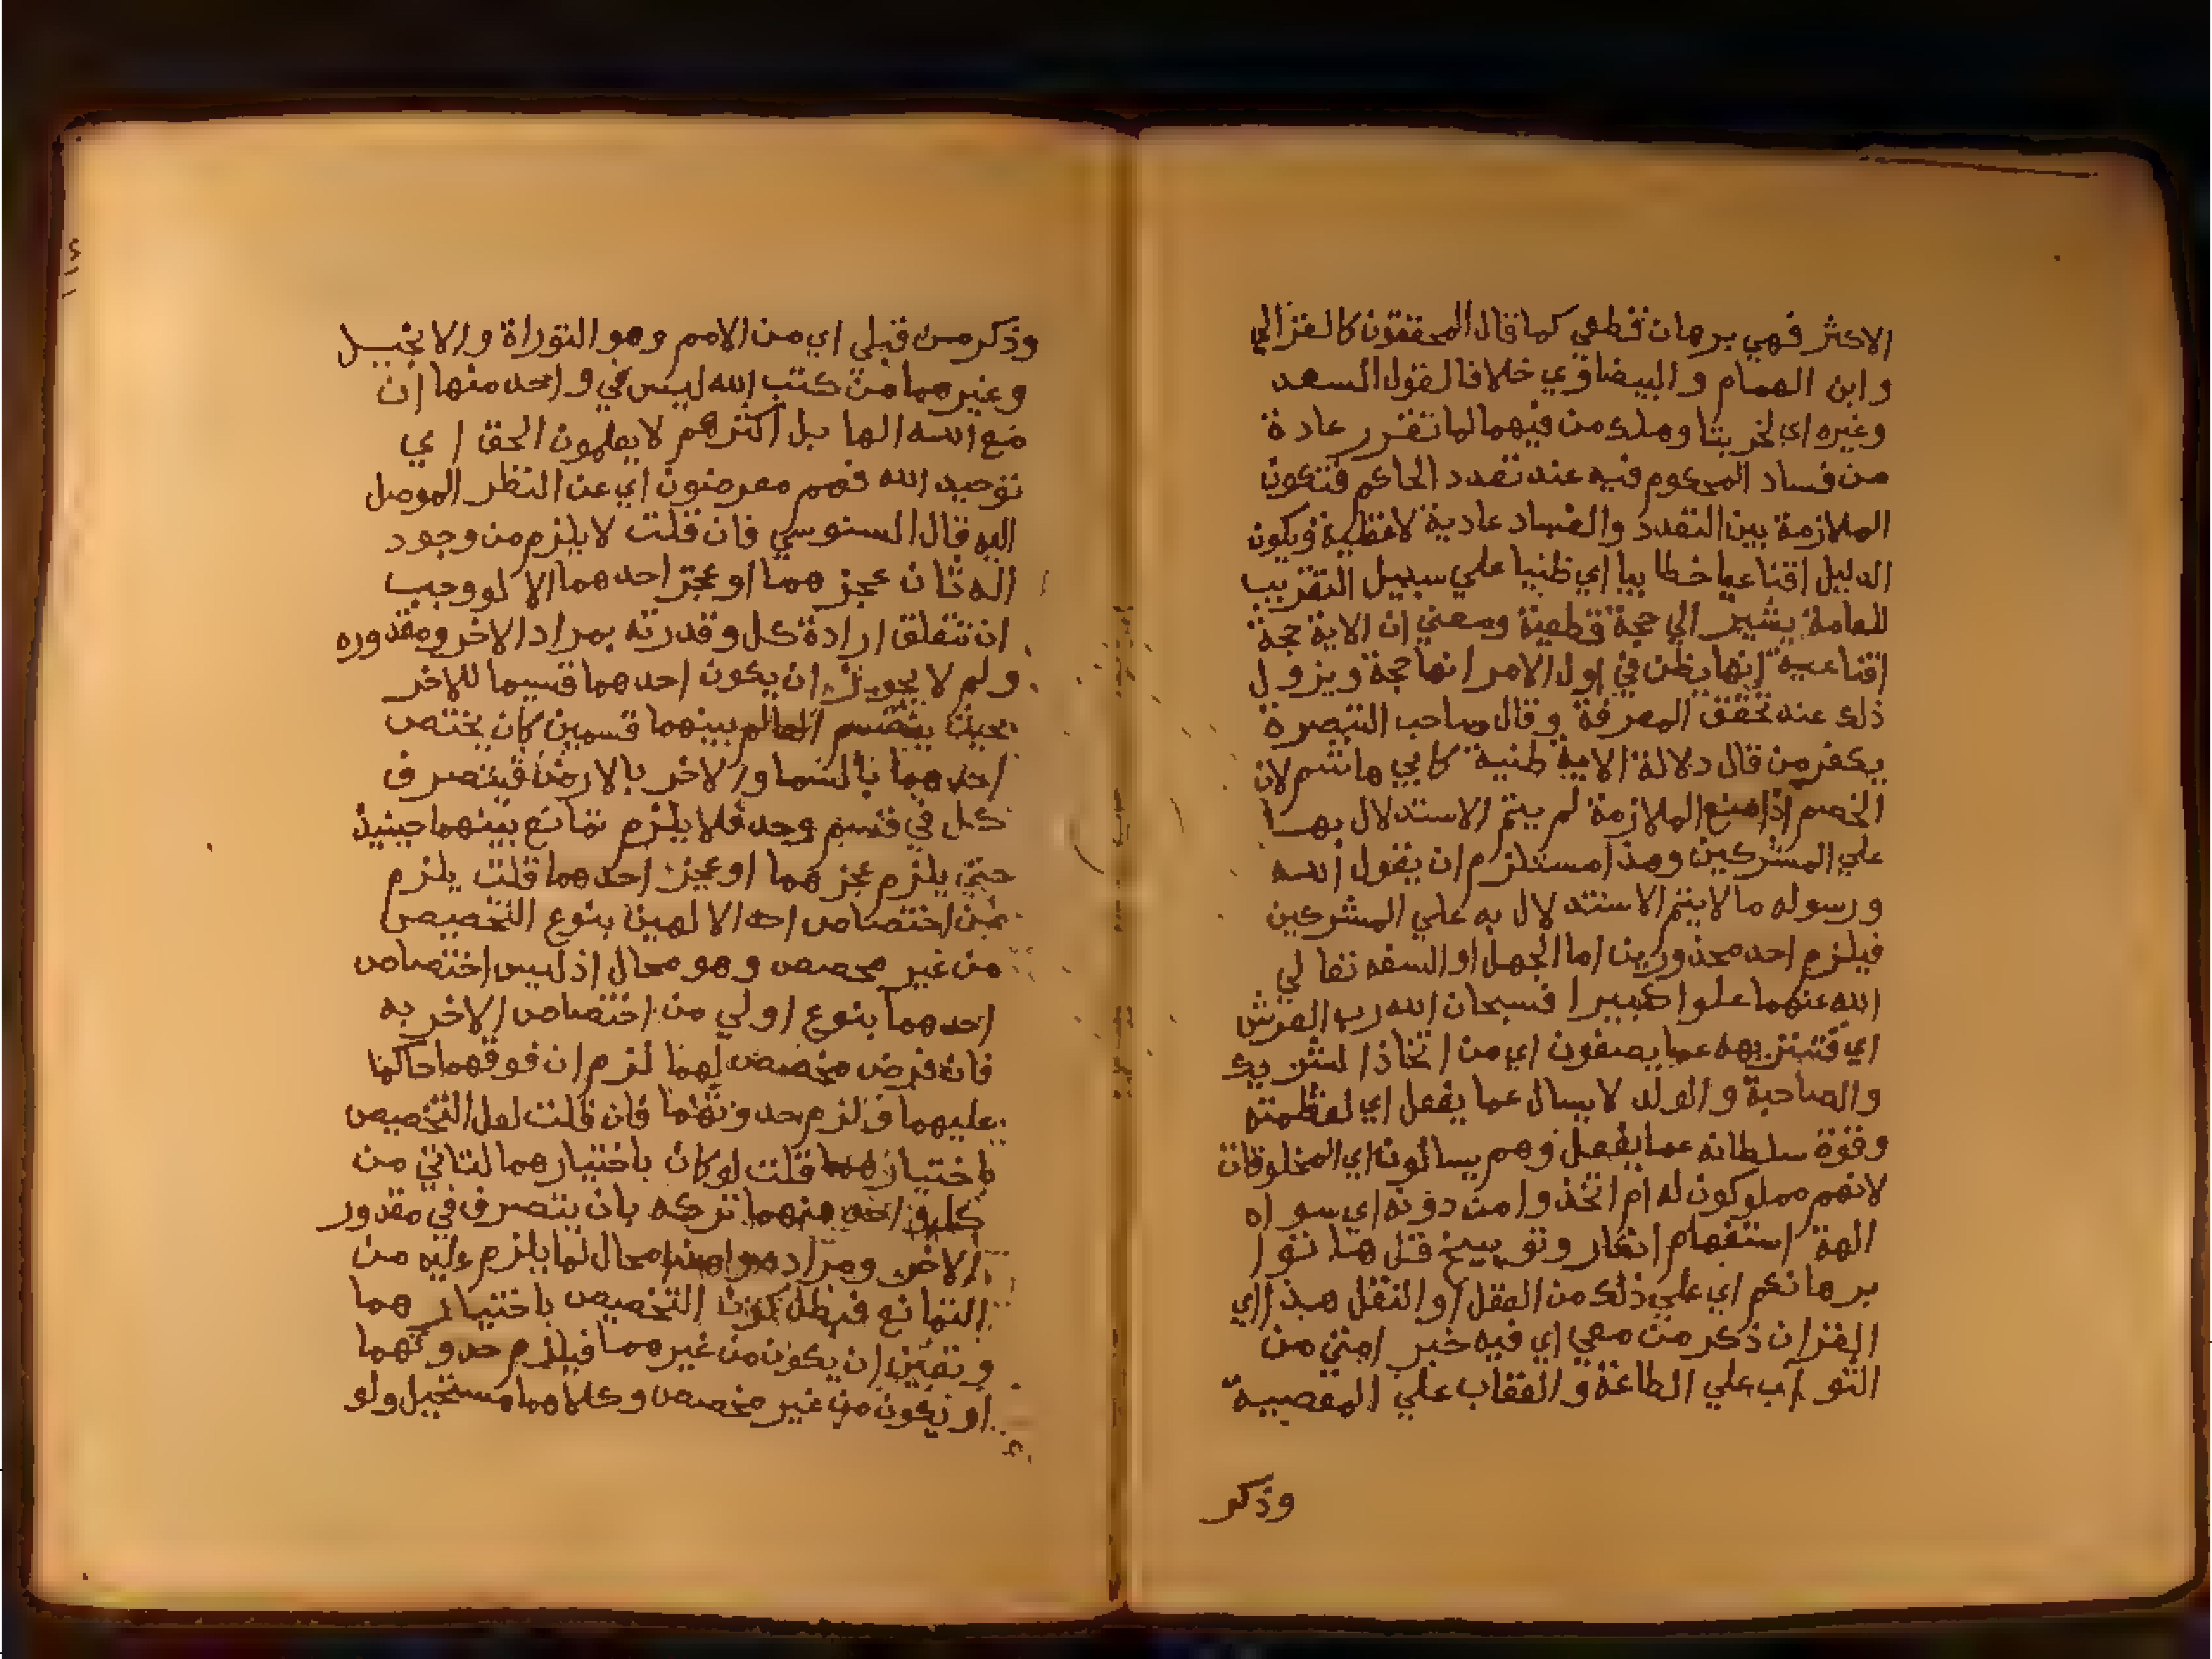 الاكثر فهي برهان قطعي كما قال المحققون كالغزالي
وابن الهمام والبيضاوي خلافا لقول السعد
وغيره اي لخربتا وهلك من فيهما لما تقرر عادة
من فساد المحكوم فيه عند تعدد الحاكم فتكون
الملازمة بين التعدد والفساد عادية لا قطعية فيكون
الدليل اقناعيا خطابيا اي ظنيا علي سبيل التقريب
للعامة يشير الي حجة قطعية ومعني ان الاية حجة
اقناعية انها يظن في اول الامر انها حجة ويزول
ذلك عند تحقق المعرفة وقال صاحب التبصرة
يكفر من قال دلالة الاية ظنية كابي هاشم لان
الخصم اذا منع الملازمة لم يتم الاستدلال بها
علي المشركين وهذا مستلزم ان يقول الله
ورسوله ما لا يتم الاستدلال به علي المشركين
فيلزم احد محذورين اما الجهل او السفه تعالي
الله عنهما علوا كبيرا فسبحان الله رب العرش
اي فتنزيهه عما يصفون اي من اتخاذ الشريك
والصاحبة والولد لا يسال عما يفعل اي لعظمته
وقوة سلطانه عما يفعل وهم يسالون اي المخلوقات
لانهم مملوكون له ام اتخذوا من دونه اي سواه
الهة استفهام انكار وتوبيخ قل هاتوا
برهانكم اي علي ذلك من العقل او النقل هذا اي
القران ذكر من معي اي فيه خبر امتي من
الثواب علي الطاعة والعقاب علي المعصية
وذكر
وذكر من قبلي اي من الامم وهو التوراة والانجيل
وغيرهما من كتب الله ليس في واحد منها ان
مع الله الها بل اكثرهم لا يعلمون الحق اي
توحيد الله فهم معرضون اي عن النظر الموصل
اليه قال السنوسي فان قلت لا يلزم من وجود
اله ثان عجزهما او عجز احدهما الا لو وجب
ان تتعلق ارادة كل وقدرته بمراد الاخر ومقدوره
ولم لا يجوز ان يكون احدهما قسيما للاخر
بحيث ينقسم العالم بينهما قسمين كان يختص
احدهما بالسما والاخر بالارض فيتصرف
كل في قسم وحده فلا يلزم تمانع بينهما حينيذ
حتي يلزم عجزهما او عجز احدهما قلت يلزم
من اختصاص احد الالهين بنوع التخصيص
من غير مخصص وهو محال اذ ليس اختصاص
احدهما بنوع اولي من اختصاص الاخر به
فان فرض مخصص لهما لزم ان فوقهما حاكما
عليهما فلزم حدوثهما فان قلت لعل التخصيص
باختيارهما قلت لو كان باختيارهما لتاتي من
كل واحد منهما تركه بان يتصرف في مقدور
الاخر ومراده وهذا محال لما يلزم عليه من
التمانع فبطل كون التخصيص باختيارهما
وتعين ان يكون من غيرهما فيلزم حدوثهما
او تكون من غير مخصص وكلاهما مستحيل ولو